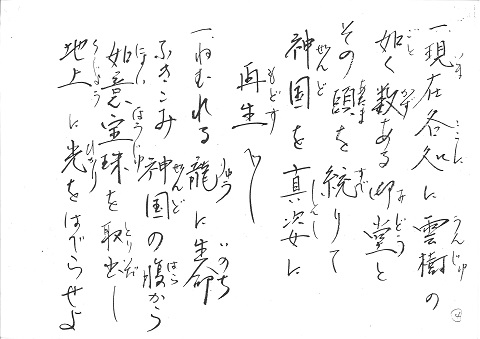 一、現在各処に雲樹の
如く数ある御堂と
その頤を統りて
神国を真姿に
再生べし
一、ねむれる龍に生命
ふきこみ神国の腹から
如意宝珠を取出し
地上に光をはせらせよ